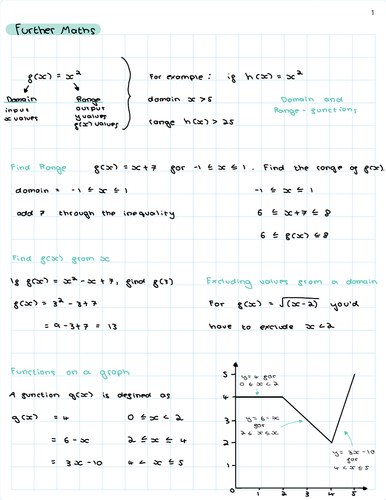 1
Further Maths
f(x) = x²
Domain
input
x values
Range
output
y values
f(x) values
For example : if h(x) = x²
domain x > 5
range h(x) > 25
Domain and
Range - functions
Find Range f(x) = x + 7 for -1 ≤ x ≤ 1 . Find the range of f(x).
domain = -1 ≤ x ≤ 1
add 7 through the inequality
-1 ≤ x ≤ 1
6 ≤ x+7 ≤ 8
6 ≤ f(x) ≤ 8
Find f(x) from x
If f(x) = x² - x + 7, find f(3)
f(x) = 3² - 3 + 7
= 9 - 3 + 7 = 13
Excluding values from a domain
For f(x) = √(x-2) you'd
have to exclude x < 2
Functions on a graph
A function g(x) is defined as
g(x) = 4 0 ≤ x < 2
= 6 - x 2 ≤ x ≤ 4
= 3x - 10 4 < x ≤ 5
5
4
3
2
1
0
1 2 3 4 5
y = 4 for
0 ≤ x < 2
y = 6 - x
for
y = 3x - 10
for
4 < x ≤ 5